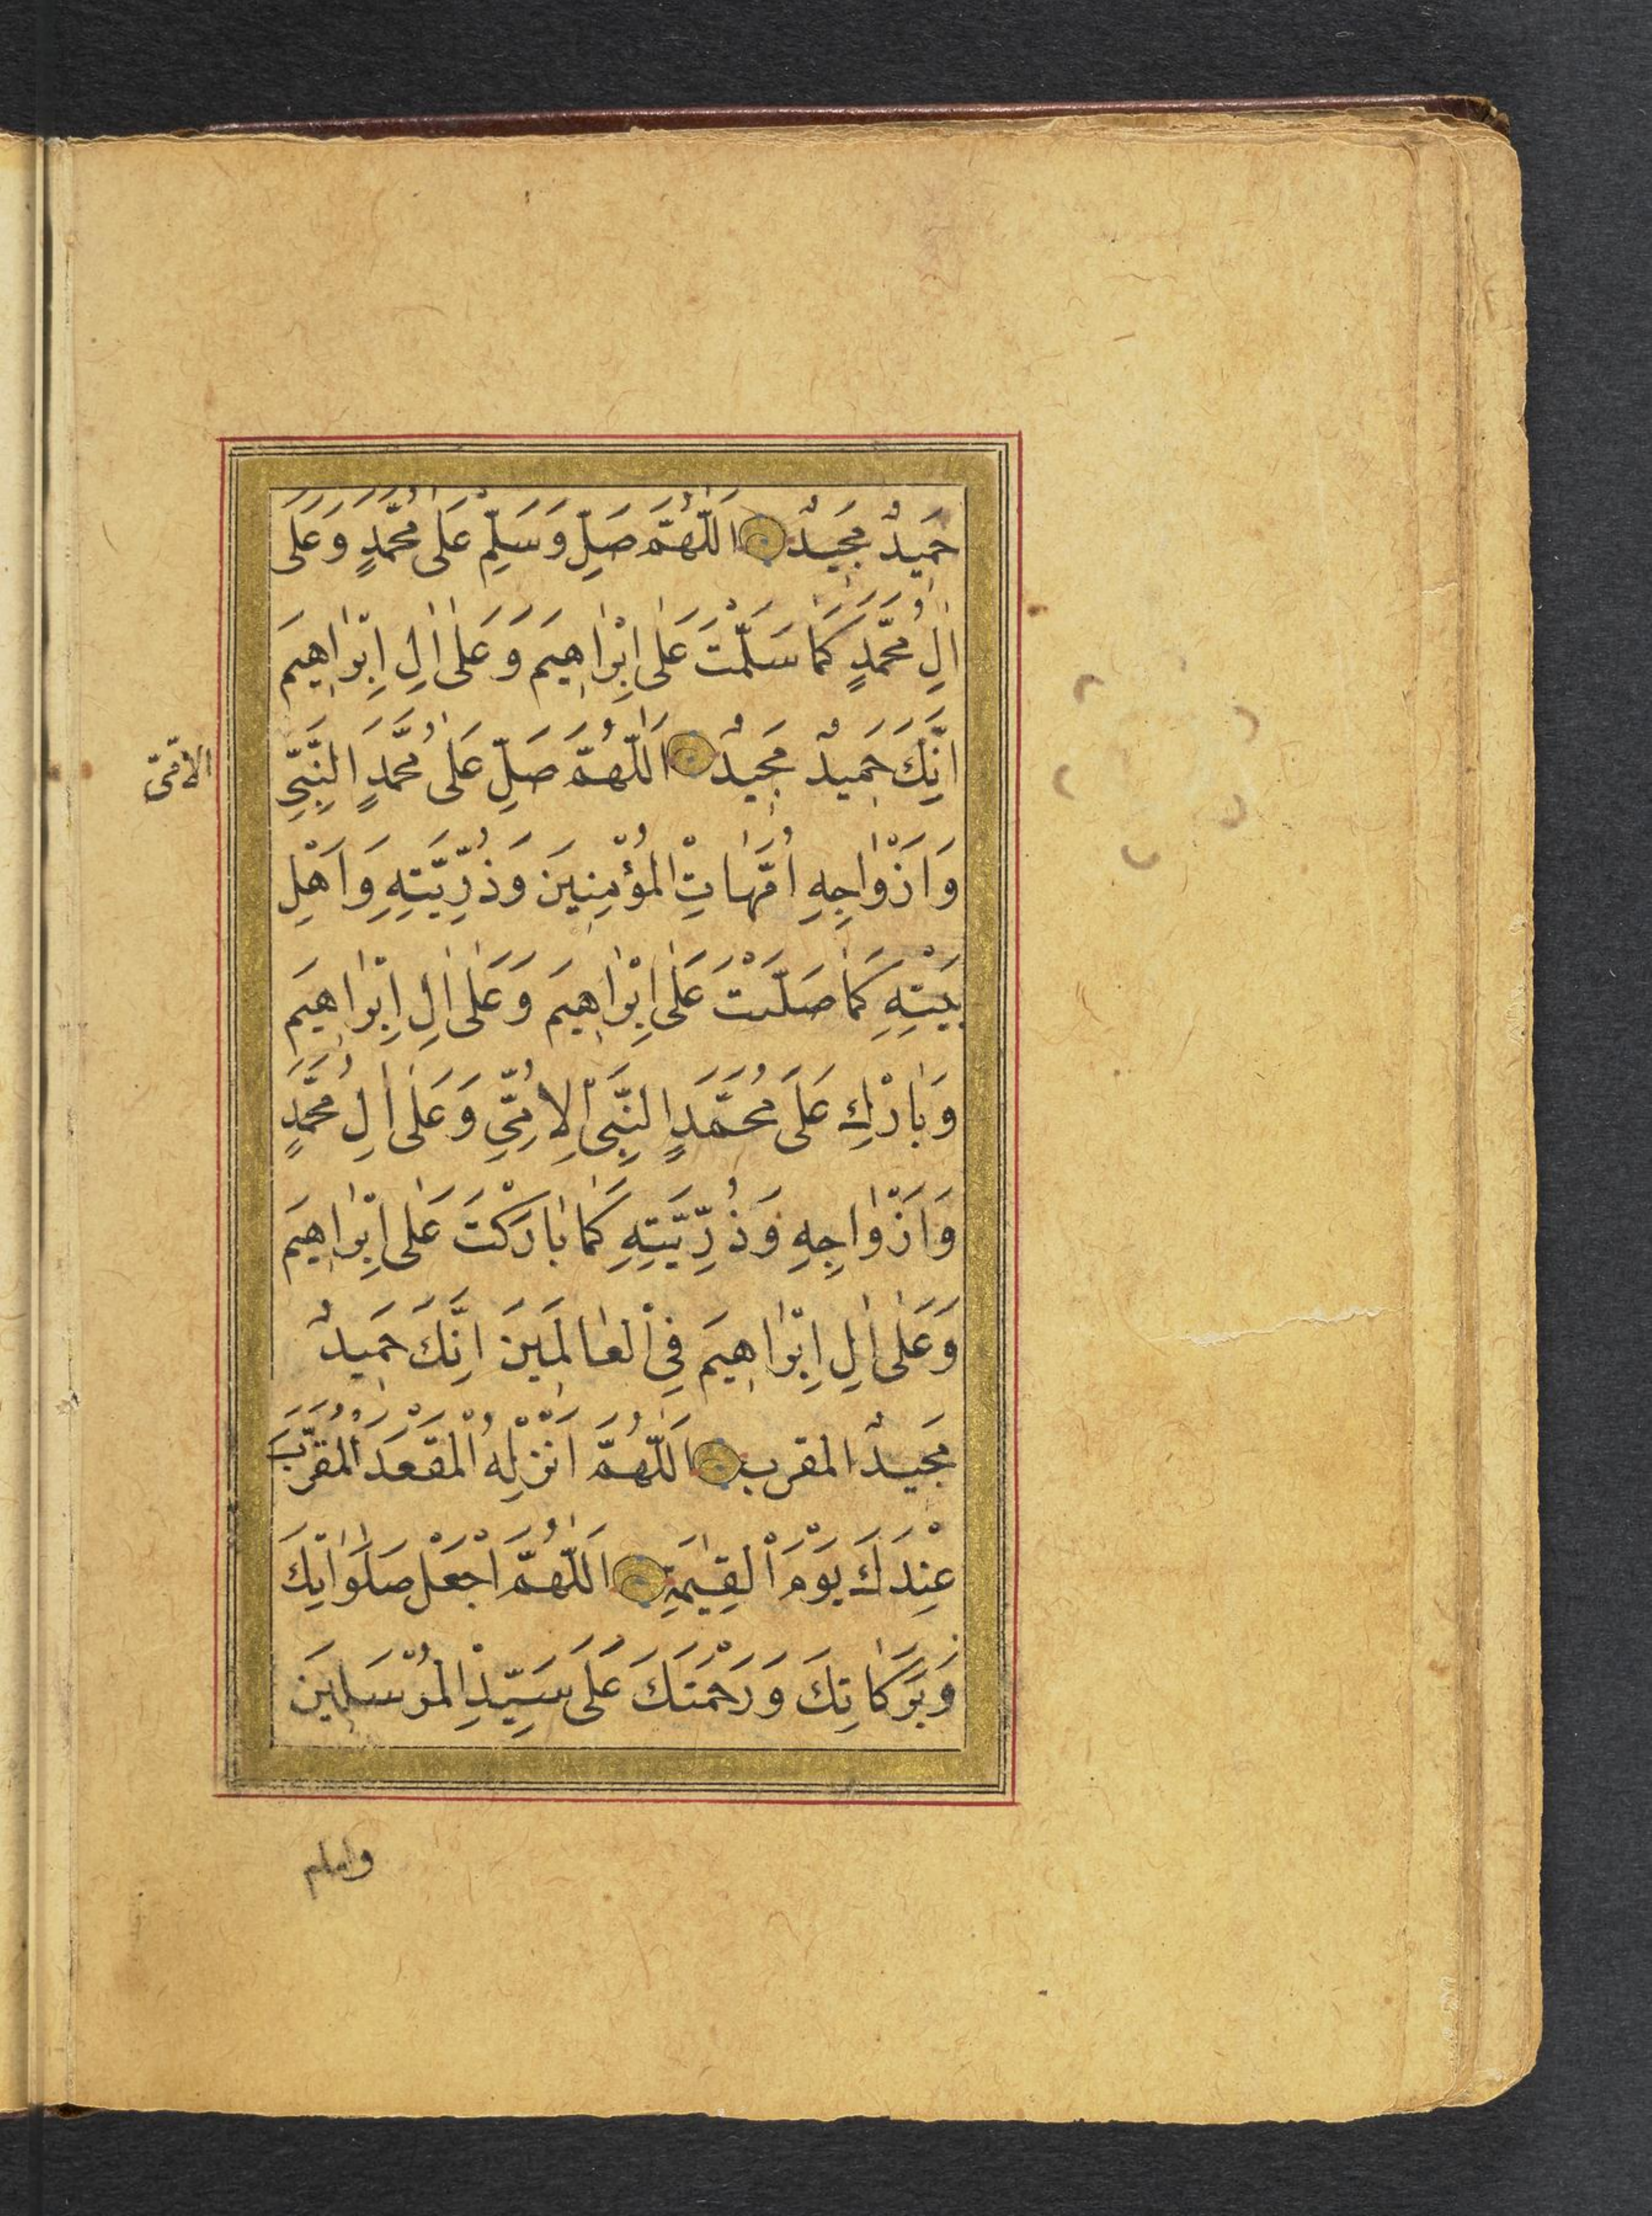 حَمِيدٌ مَجِيدٌ اَللّٰهُمَّ صَلِّ وَسَلِّمْ عَلٰى مُحَمَّدٍ وَعَلَى
اٰلِ مُحَمَّدٍ كَمَا سَلَّمْتَ عَلٰى اِبْرٰاهِيمَ وَعَلٰى اٰلِ اِبْرٰاهِيمَ
اِنَّكَ حَمِيدٌ مَجِيدٌ اَللّٰهُمَّ صَلِّ عَلٰى مُحَمَّدٍ النَّبِيِّ
الامّىّ
وَاَزْوٰاجِهِ اُمَّهٰاتِ الْمُؤْمِنِينَ وَذُرِّيَّتِهِ وَاَهْلِ
بَيْتِهِ كَمٰا صَلَّيْتَ عَلٰى اِبْرٰاهِيمَ وَعَلٰى اٰلِ اِبْرٰاهِيمَ
وَبٰارْكِ عَلَى مُحَمَّدٍ النَّبِىِّ الْاُمِّيِّ وَعَلٰى اٰلِ مُحَمَّدٍ
وَاَزْوٰاجِهِ وَذُرِّيَّتِهِ كَمٰا بٰارَكْتَ عَلٰى اِبْرٰاهِيمَ
وَعَلٰى اٰلِ اِبْرٰاهِيمَ فِى الْعٰالَمِينَ اِنَّكَ حَمِيدٌ
مَجِيدٌ المقرب اَللّٰهُمَّ اَنْزِلْهُ الْمَقْعَدَ الْمُقَرَّبَ
عِنْدَكَ يَوْمَ الْقِيٰمَةِ اَللّٰهُمَّ اجْعَلْ صَلَوٰاتِكَ
وَبَرَكٰاتِكَ وَرَحْمَتَكَ عَلَى سَيِّدِ الْمُرْسَلِينَ
وامام